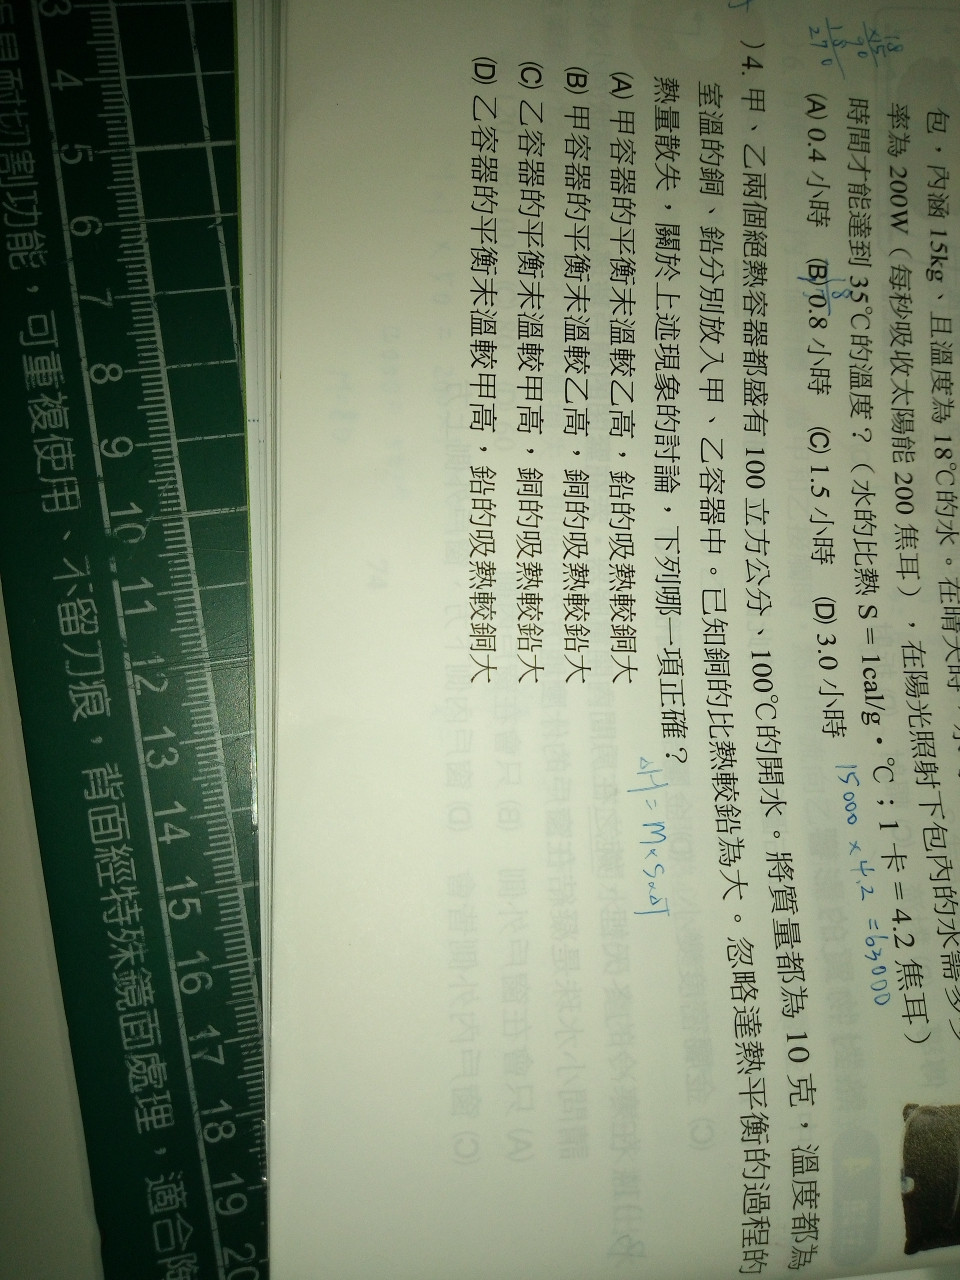 包，內涵 15kg、且溫度為 18℃的水。在晴天時，
率為 200W（每秒吸收太陽能 200 焦耳），在陽光照射下包內的水需多少
時間才能達到 35℃的溫度？（水的比熱 S = 1cal/g・℃；1 卡 = 4.2 焦耳）
(A) 0.4 小時 (B) 0.8 小時 (C) 1.5 小時 (D) 3.0 小時
18
×15
90
18
270
15000 × 4.2 = 63000
) 4. 甲、乙兩個絕熱容器都盛有 100 立方公分、100℃的開水。將質量都為 10 克，溫度都為
室溫的銅、鉛分別放入甲、乙容器中。已知銅的比熱較鉛為大。忽略達熱平衡的過程的
熱量散失，關於上述現象的討論，下列哪一項正確？
ΔH = M×S×ΔT
(A) 甲容器的平衡末溫較乙高，鉛的吸熱較銅大
(B) 甲容器的平衡末溫較乙高，銅的吸熱較鉛大
(C) 乙容器的平衡末溫較甲高，銅的吸熱較鉛大
(D) 乙容器的平衡末溫較甲高，鉛的吸熱較銅大
3 4 5 6 7 8 9 10 11 12 13 14 15 16 17 18 19 20
耐切割功能，可重複使用、不留刀痕，背面經特殊鏡面處理，適合